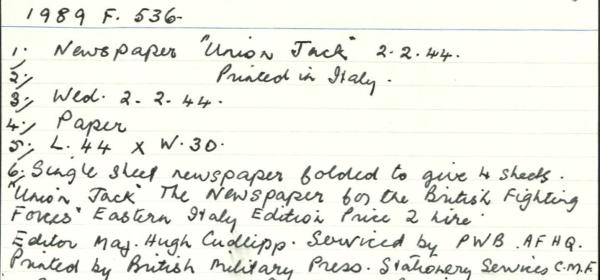 1989 F. 536.
1; Newspaper "Union Jack" 2.2.44.
2; Printed in Italy.
3; Wed. 2.2.44.
4; Paper
5; L. 44 x W. 30.
6; Single sheet newspaper folded to give 4 sheets.
"Union Jack" The Newspaper for the British Fighting
Forces" Eastern Italy Edition Price 2 lire
Editor Maj. Hugh Cudlipp. Serviced by PWB. AFHQ.
Printed by British Military Press. Stationery Services C.M.F